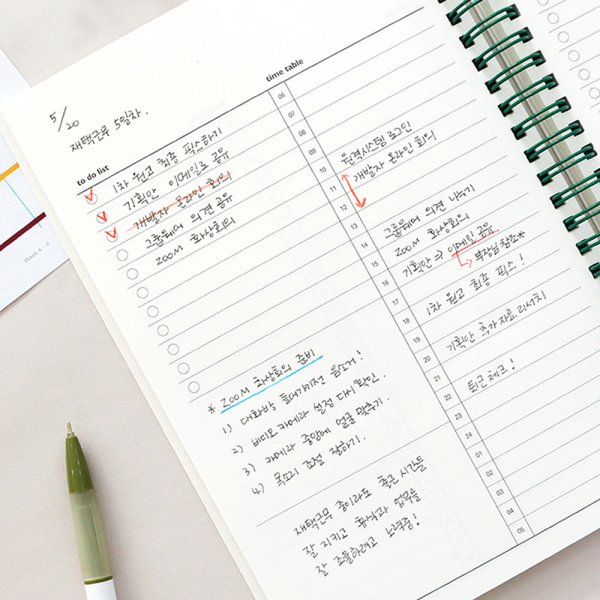 5/20
재택근무 5일차.
to do list
1차 원고 최종 픽스하기
기획안 이메일로 공유
개발자 온라인 회의
그룹웨어 의견 공유
ZOOM 화상회의
* ZOOM 화상회의 준비
1) 대화방 들어가기전 음소거!
2) 비디오 카메라 설정 다시 확인.
3) 카메라 중앙에 얼굴 맞추기.
4) 목소리 조절 잘하기.
재택근무 중이라도 출근 시간을
잘 지키고 휴식과 업무를
잘 조율하려고 노력중!
time table
06
07
08
09
10 원격시스템 로그인
11 개발자 온라인 회의
12
13 그룹웨어 의견 나누기
14 ZOOM 화상회의
15 기획안 → 이메일 공유
16 부장님 참조*
17 1차 원고 최종 픽스!
18
19 기획안 추가 자료 리서치
20
21 퇴근 체크!
22
23
24
01
02
03
04
05
Week 4 - 6